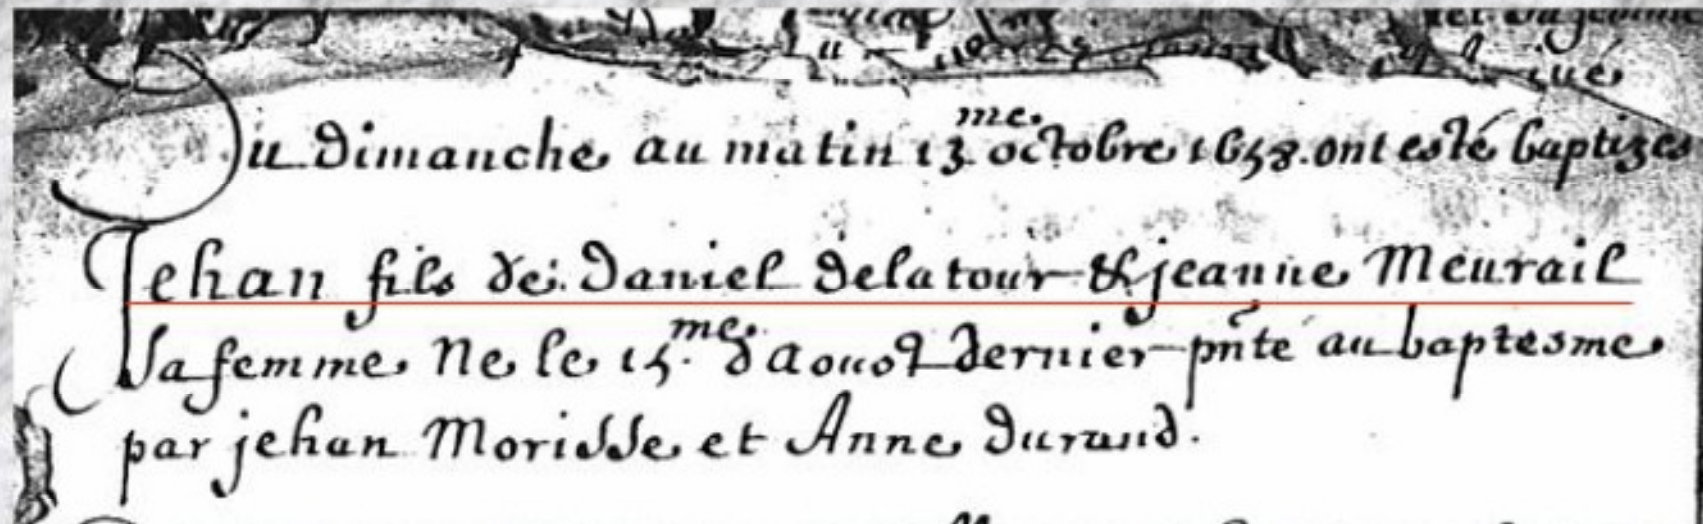 Du dimanche au matin 13me. octobre 1658. ont esté baptizes
Jehan fils de. Daniel delatour & jeanne Meurail
sa femme Ne le 15.me d'Aoust dernier pñte au baptesme
par jehan Morisse et Anne durand.